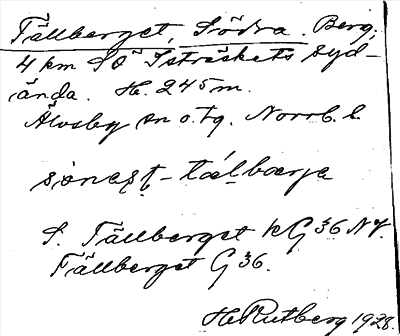 Tällberget, Södra. Berg,
4 km SÖ Isträskets syd-
ända. H. 245 m.
Älvsby sn o. tg. Norrb. l.
sönaşt-tálbærja
S. Tällberget kG 36 NV.
Fällberget G 36.
H. Rutberg 1928.